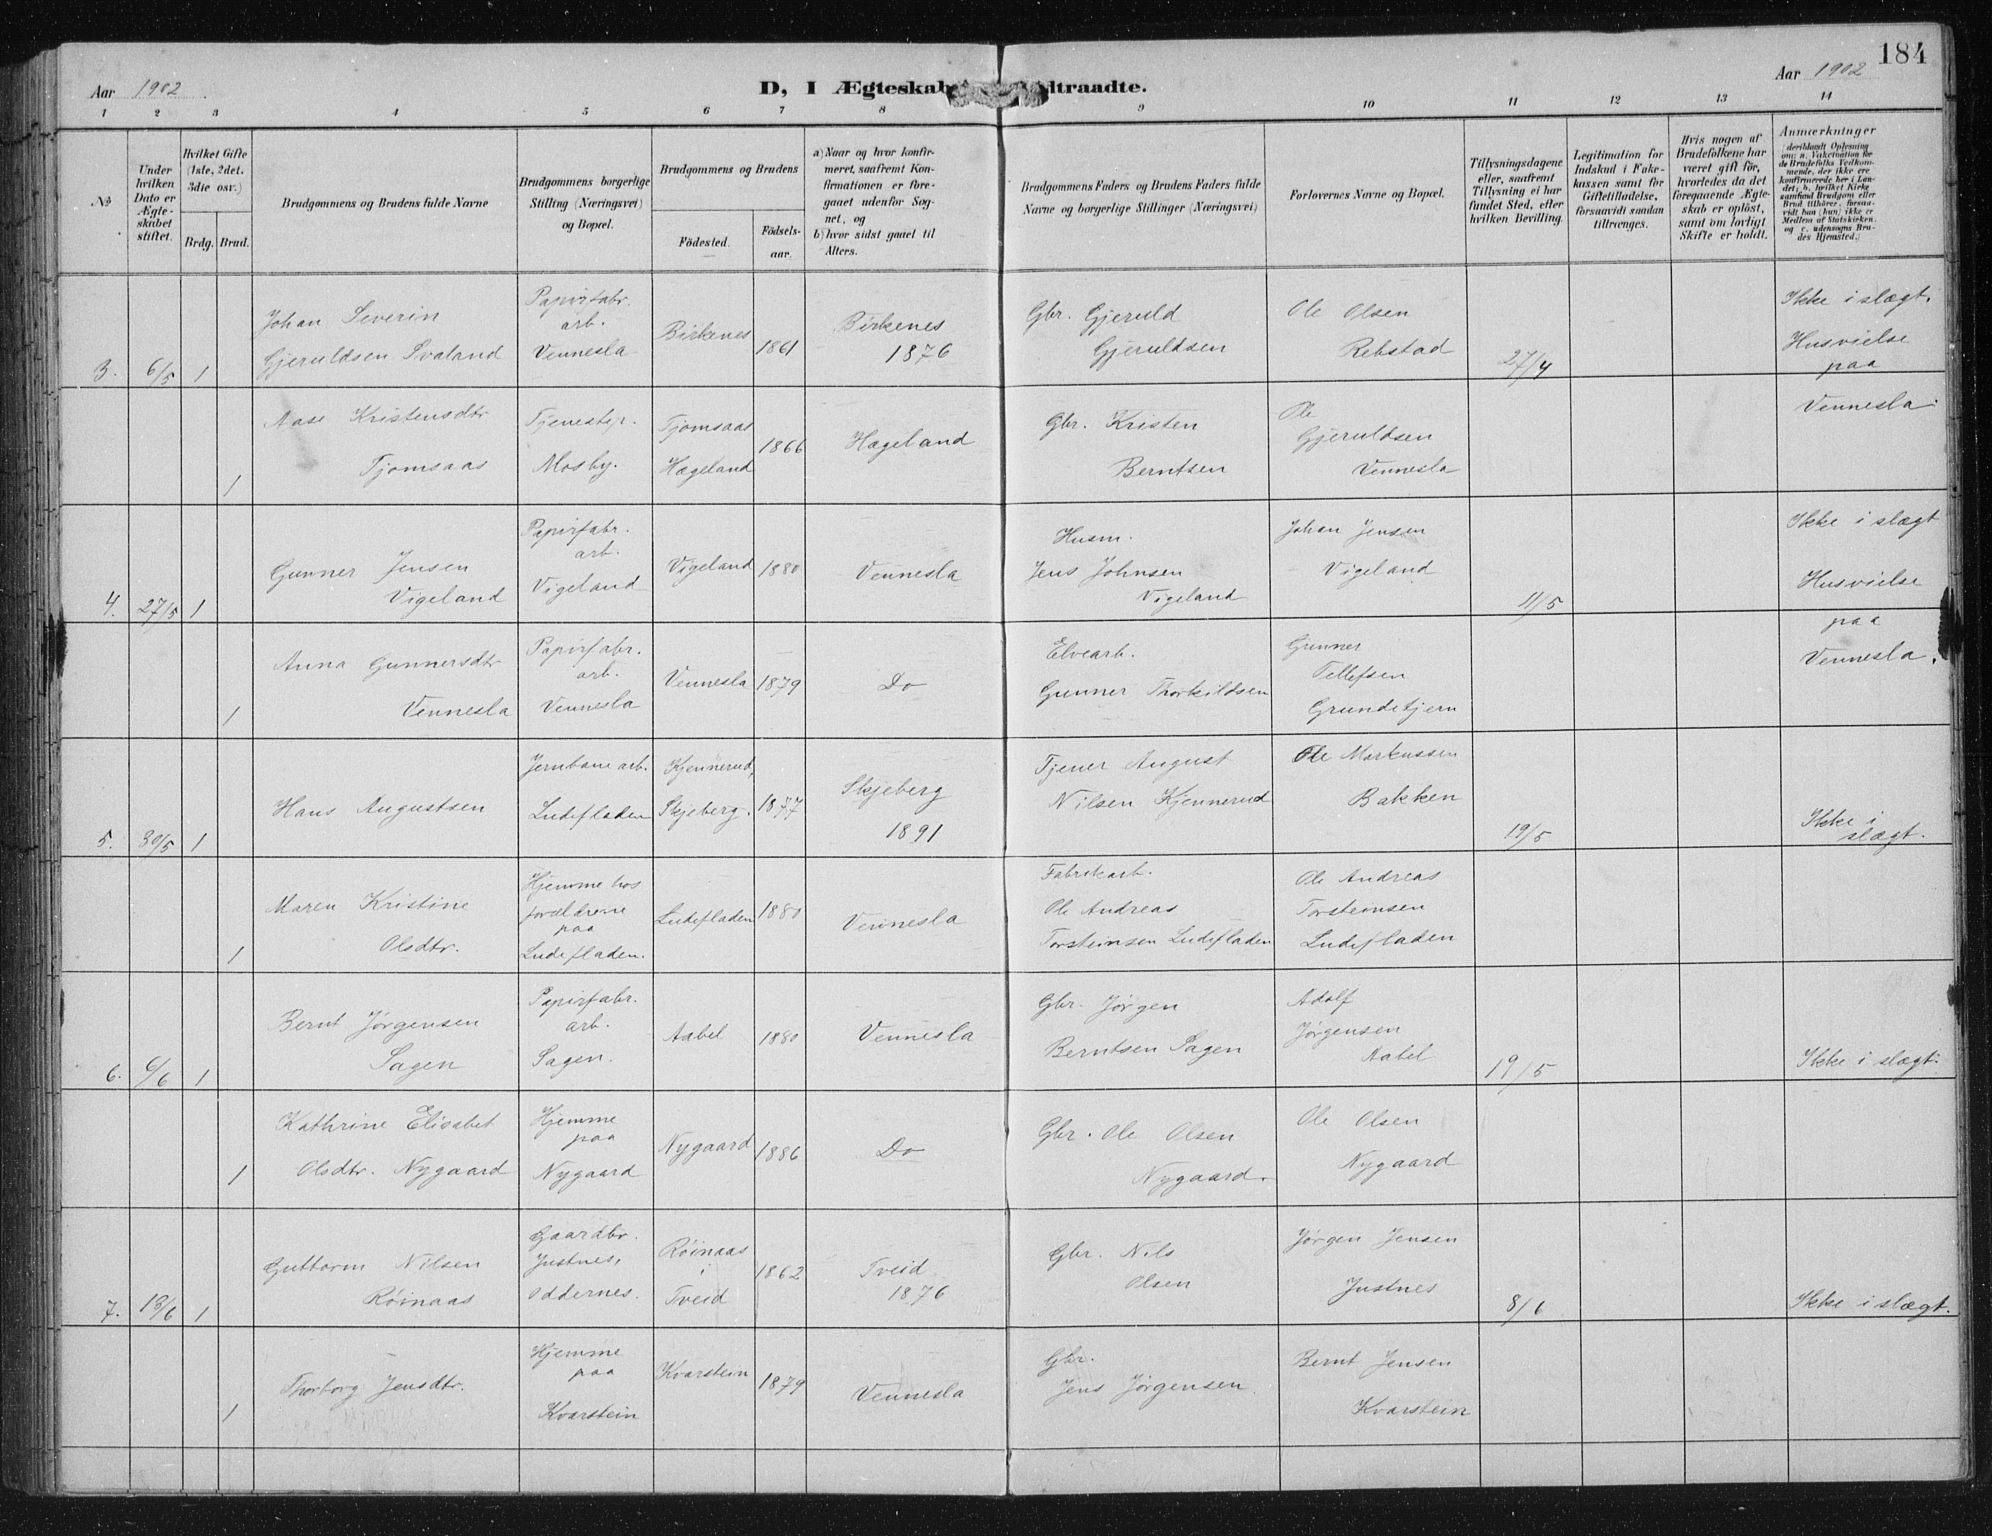 184
Aar 1902
D, I Ægteskab
dtraadte.
Aar 1902
1 2 3 4 5 6 7 8 9 10 11 12 13 14
№
Under hvilken Dato er Ægteskabet stiftet.
Hvilket Gifte (1ste, 2det, 3die osv.)
Brdg. Brud.
Brudgommens og Brudens fulde Navne
Brudgommens borgerlige Stilling (Næringsvei) og Bopæl.
Brudgommens og Brudens
Fødested.
Fødselsaar.
a) Naar og hvor konfirmeret, saafremt Konfirmationen er foregaaet udenfor Sognet, og
b) hvor sidst gaaet til Alters.
Brudgommens Faders og Brudens Faders fulde Navne og borgerlige Stillinger (Næringsvei)
Forlovernes Navne og Bopæl.
Tillysningsdagene eller, saafremt Tillysning ei har fundet Sted, efter hvilken Bevilling.
Legitimation for Indskud i Enkekassen samt for Giftetilladelse, forsaavidt saadan tiltrænges.
Hvis nogen af Brudefolkene har været gift før, hvorledes da det foregaaende Ægteskab er opløst, samt om lovligt Skifte er holdt.
Anmærkninger
3. 6/5 1
Johan Severin
Gjeruldsen Svaland
Papirfabr.
arb.
Vennesla
Birkenes
1861
Birkenes
1876
Gbr. Gjeruld
Gjeruldsen
Ole Olsen
Rebstad
27/4
Ikke i slægt.
Husvielse
paa
Vennesla.
1
Aase Kristensdtr
Tjomsaas
Tjenestep.
Mosby.
Tjomsaas
Hægeland
1866
Hægeland
Gbr. Kristen
Berntsen
Ole
Gjeruldsen
Vennesla
4. 27/5 1
Gunner Jensen
Vigeland
Papirfabr.
arb.
Vigeland
Vigeland
1880
Vennesla
Husm.
Jens Johnsen
Vigeland
Johan Jensen
Vigeland
11/5
Ikke i slægt
Husvielse
paa
Vennesla.
1
Anna Gunnersdtr
Vennesla
Papirfabr.
arb.
Vennesla
Vennesla
1879
Do
Elvearb.
Gunner Thorkildsen
Gunner
Tellefsen
Grundetjern
5. 30/5 1
Hans Augustsen
Jernbane arb.
Ludefladen
Kjennerud,
Skjeberg.
1877
Skjeberg
1891
Tjener August
Nilsen Kjennerud
Ole Markussen
Bakken
19/5
Ikke i
slægt.
1
Maren Kristine
Olsdtr.
Hjemme hos
forældrene
paa
Ludefladen.
Ludefladen
1880
Vennesla
Fabrikarb.
Ole Andreas
Torsteinsen Ludefladen
Ole Andreas
Torsteinsen
Ludefladen
6. 6/6 1
Bernt Jørgensen
Sagen
Papirfabr.
arb.
Sagen.
Aabel
1880
Vennesla
Gbr. Jørgen
Berntsen Sagen
Adolf
Jørgensen
Aabel
19/5
Ikke i slægt.
1
Kathrine Elisabet
Olsdtr. Nygaard
Hjemme
paa
Nygaard
Nygaard
1886
Do
Gbr. Ole Olsen
Nygaard.
Ole Olsen
Nygaard
7. 13/6 1
Guttorm Nilsen
Røinaas
Gaardbr.
Justnes,
Oddernes.
Røinaas
i
Tveid
1862
Tveid
1876
Gbr. Nils
Olsen
Jørgen Jensen
Justnes
8/6
Ikke i slægt.
1
Thorborg Jensdtr.
Hjemme
paa
Kvarstein
Kvarstein
1879
Vennesla
Gbr.
Jens Jørgensen
Bernt Jensen
Kvarstein